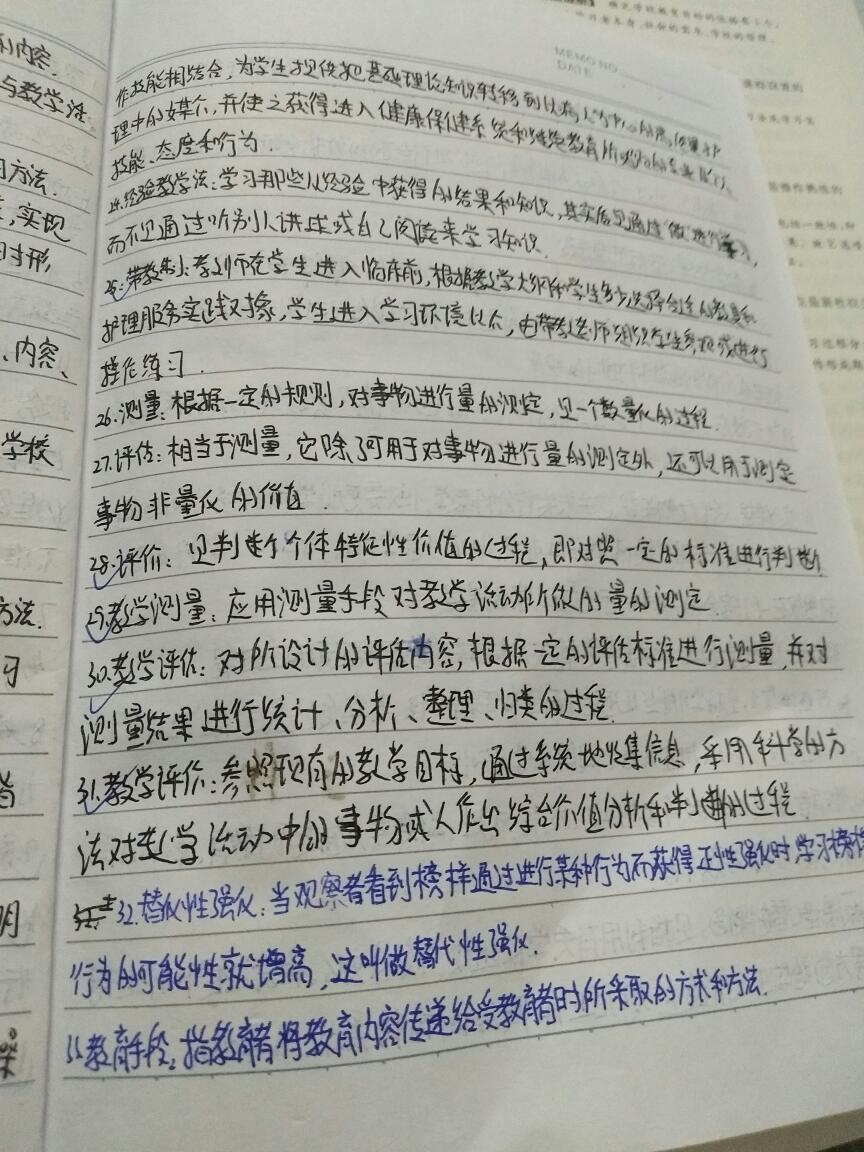 MEMO NO.
DATE
作技能相结合,为学生提供把基础理论知识转移到以病人为中心的高质量护
理中的媒介,并使之获得进入健康保健系统和继续教育所必须的专业
技能、态度和行为.
24.经验教学法:学习那些从经验中获得的结果和知识,其实质是通过"做"进行学习,
而不是通过听别人讲述或自己阅读来学习知识.
25.带教制:教师在学生进入临床前,根据教学大纲和学生
护理服务实践对象,学生进入学习环境以后,由带教老师组织学生参观或进行
操作练习.
26.测量:根据一定的规则,对事物进行量的测定,是一个数量化的过程.
27.评估:相当于测量,它除了可用于对事物进行量的测定外,还可以用于测定
事物非量化的价值.
28.评价:是判断个体特征性价值的过程,即对照一定的标准进行判断
29.教学测量:应用测量手段对教学活动所做的量的测定.
30.教学评估:对所设计的评估内容,根据一定的评估标准进行测量,并对
测量结果进行统计、分析、整理、归类的过程.
31.教学评价:参照现有的教学目标,通过系统地收集信息,采用科学的方
法对教学活动中的事物或人作出综合价值分析和判断的过程
32.替代性强化:当观察者看到榜样通过进行某种行为而获得正性强化时,学习榜样
行为的可能性就增高,这叫做替代性强化.
33.教育手段:指教育者将教育内容传递给受教育者时所采取的方式和方法.